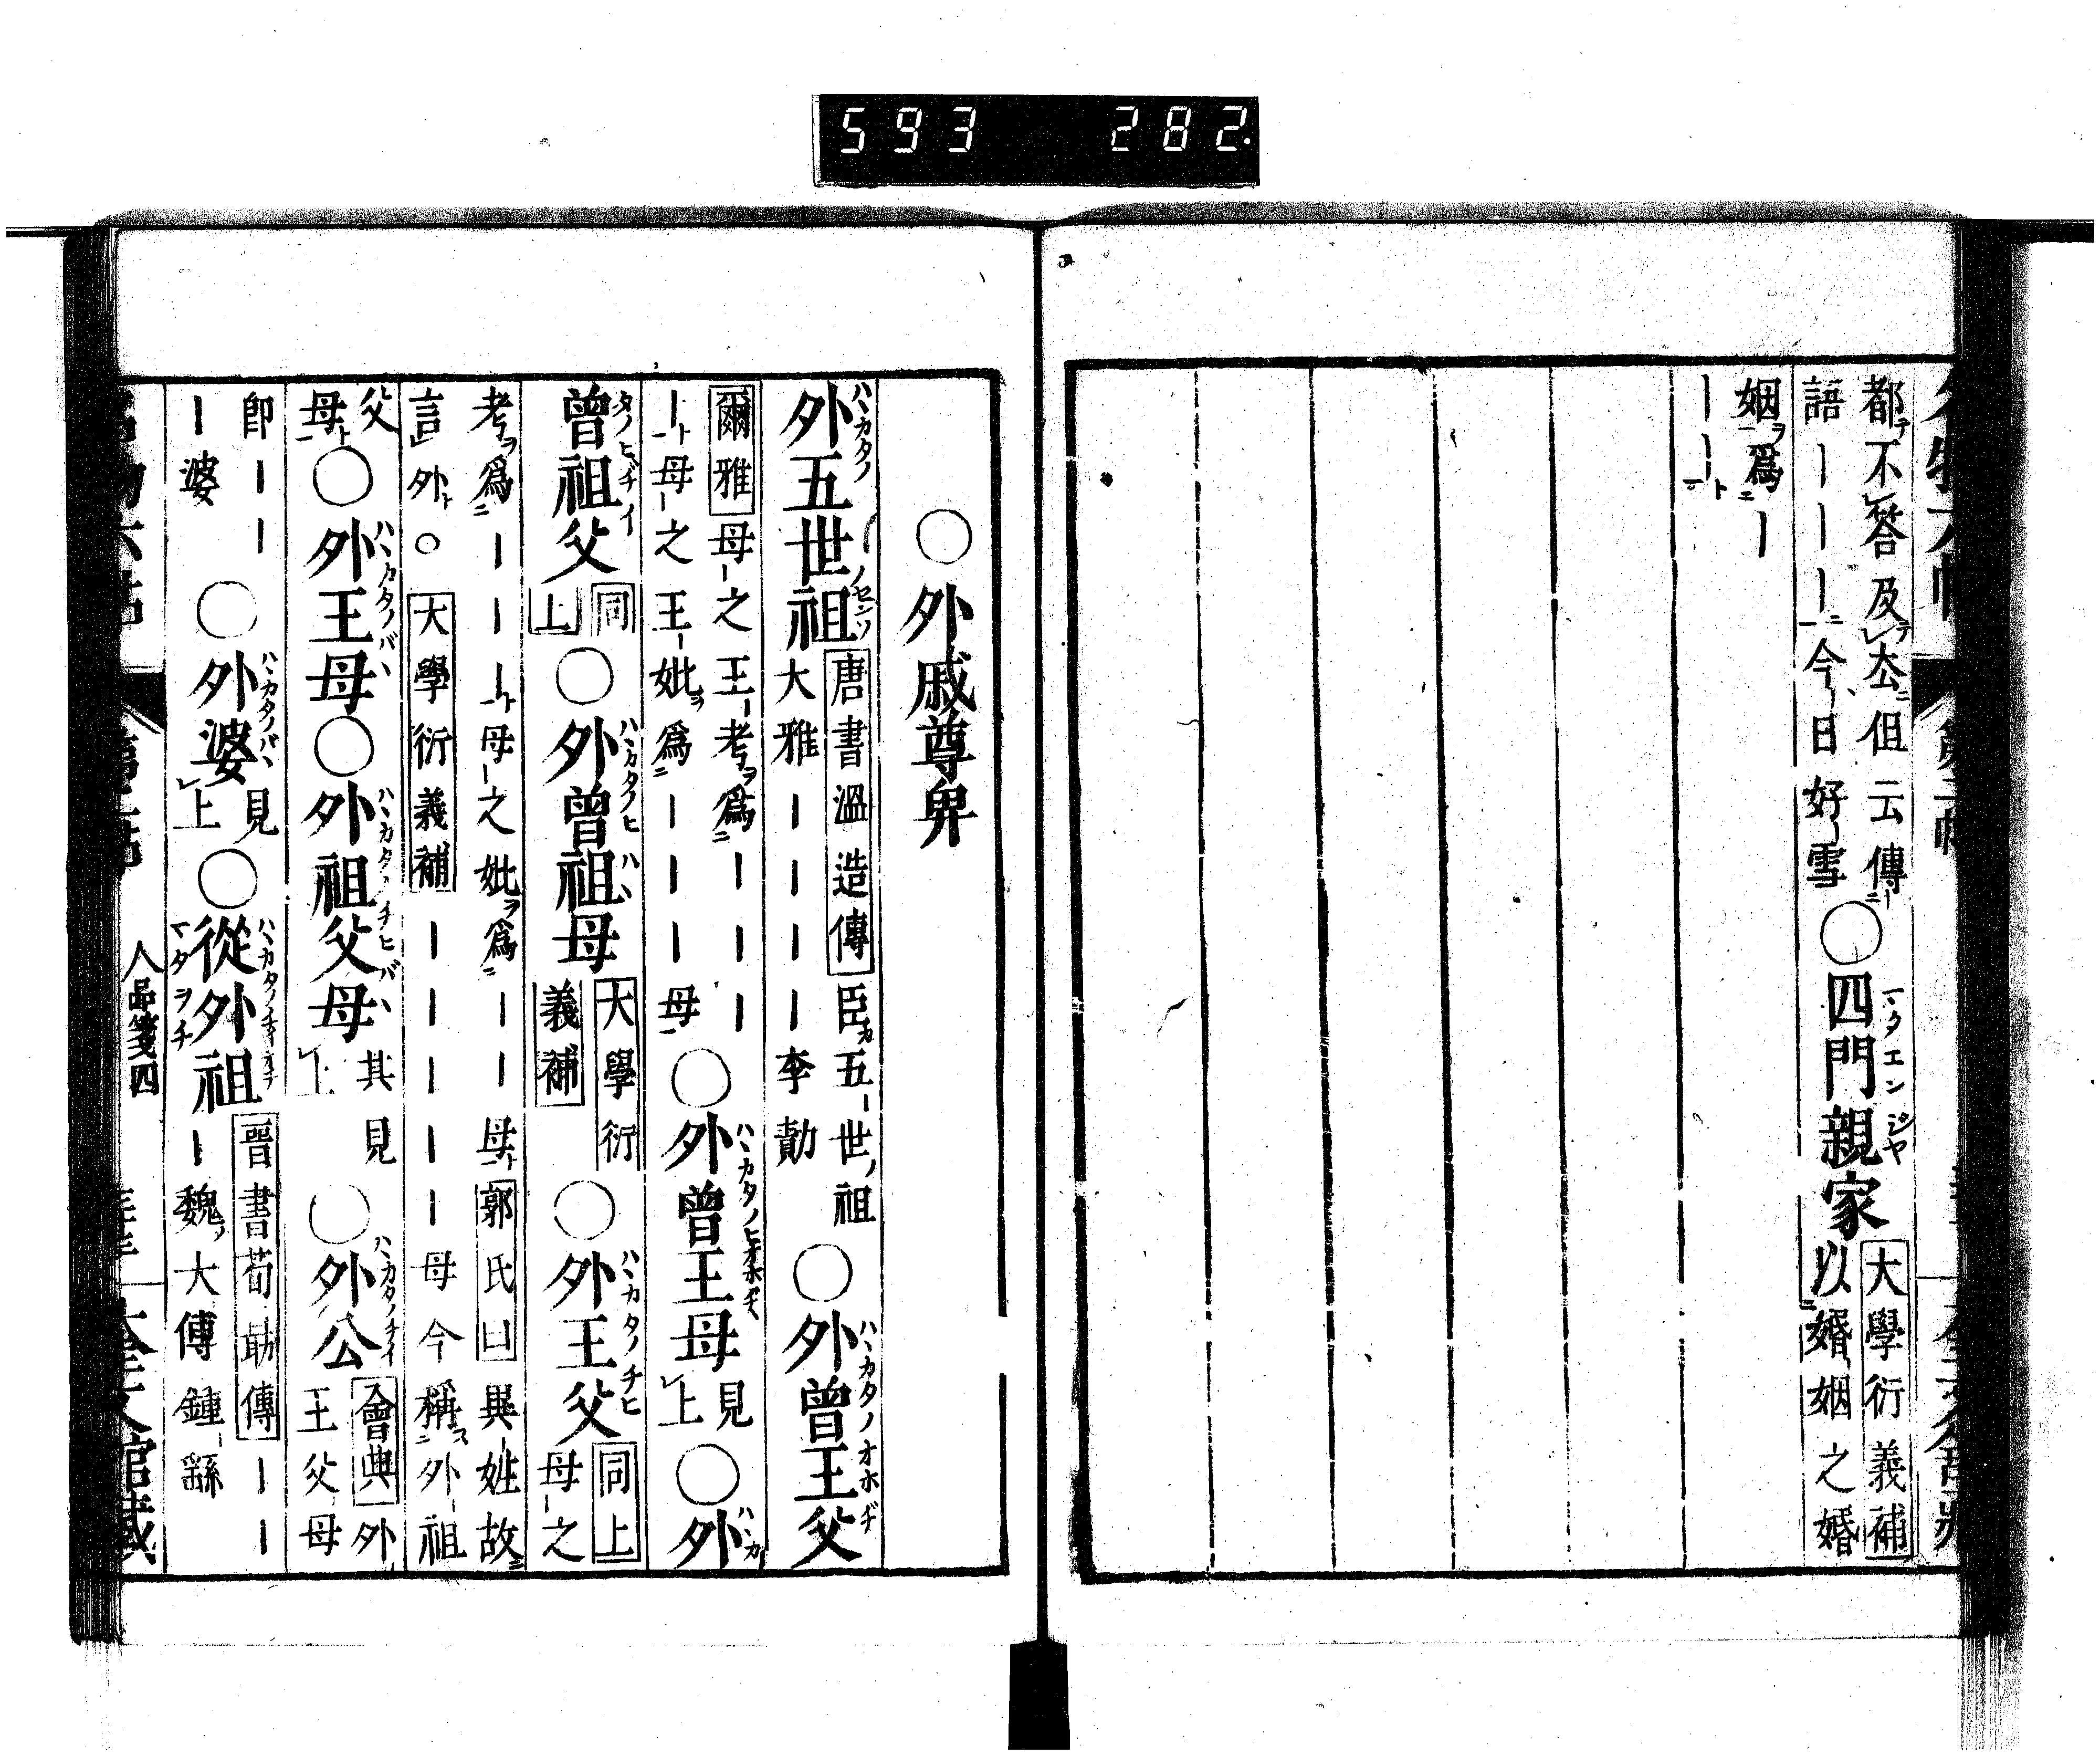 593 282.
都不答及去但云傳
語｜｜｜｜今日好雪
○四門親家
大學衍義補
以婚姻之婚
姻爲｜
｜｜
○外戚尊卑
外五世祖
唐書溫造傳臣五世祖
大雅｜｜｜｜李勣
○外曾王父
爾雅母之王考爲｜｜｜
｜母之王妣爲｜｜｜母
○外曾王母
見上
○外
曾祖父
同上
○外曾祖母
大學衍義補
○外王父
同上
母之
考爲｜｜｜母之妣爲｜｜母郭氏曰異姓故
言外○大學衍義補｜｜｜｜｜母今稱外祖
父母
○外王母
○外祖父母
其見上
○外公
會典外
王父母
即｜｜
｜婆
○外婆
見上
○從外祖
晉書荀勖傳｜｜
｜魏大傅鍾繇
人品箋四